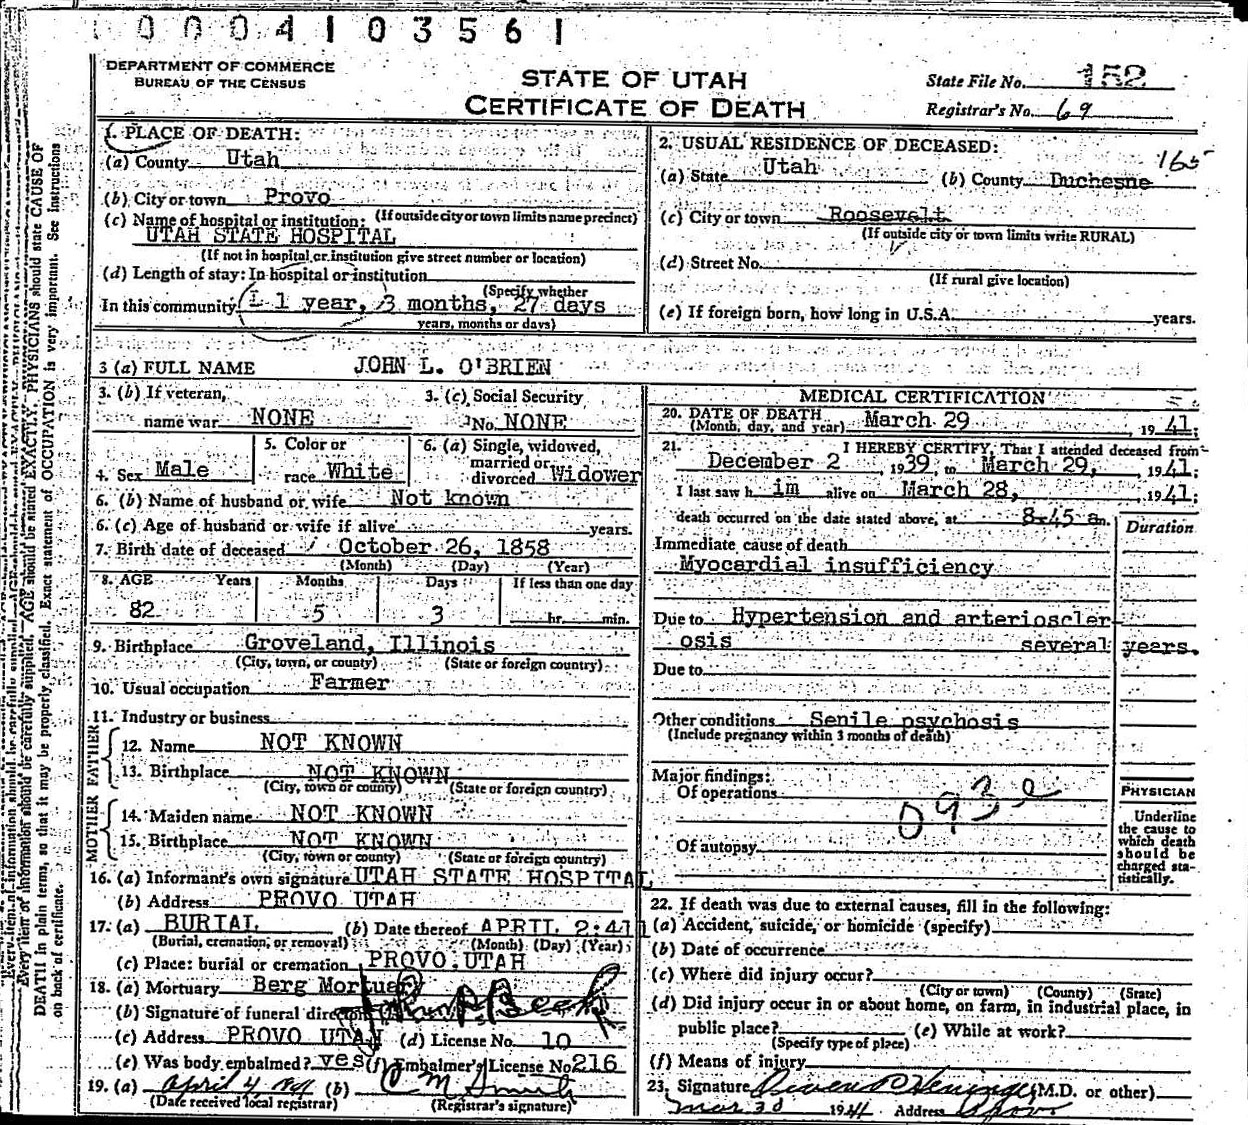 0004103561
DEPARTMENT OF COMMERCE
BUREAU OF THE CENSUS
STATE OF UTAH
CERTIFICATE OF DEATH
State File No. 152
Registrar's No. 69
1. PLACE OF DEATH:
(a) County Utah
(b) City or town Provo
(c) Name of hospital or institution: (If outside city or town limits name precinct)
UTAH STATE HOSPITAL
(If not in hospital or institution give street number or location)
(d) Length of stay: In hospital or institution
(Specify whether
In this community 1 year, 3 months, 27 days
years, months or days)
2. USUAL RESIDENCE OF DECEASED:
165
(a) State Utah (b) County Duchesne
(c) City or town Roosevelt
(If outside city or town limits write RURAL)
(d) Street No.
(If rural give location)
(e) If foreign born, how long in U.S.A. years.
3 (a) FULL NAME JOHN L. O'BRIEN
3. (b) If veteran, name war NONE
3. (c) Social Security No. NONE
4. Sex Male
5. Color or race White
6. (a) Single, widowed, married or divorced Widower
6. (b) Name of husband or wife Not known
6. (c) Age of husband or wife if alive years.
7. Birth date of deceased October 26, 1858
(Month) (Day) (Year)
8. AGE Years Months Days If less than one day
82 5 3 hr. min.
9. Birthplace Groveland, Illinois
(City, town, or county) (State or foreign country)
10. Usual occupation Farmer
11. Industry or business
FATHER
12. Name NOT KNOWN
13. Birthplace NOT KNOWN
(City, town or county) (State or foreign country)
MOTHER
14. Maiden name NOT KNOWN
15. Birthplace NOT KNOWN
(City, town or county) (State or foreign country)
16. (a) Informant's own signature UTAH STATE HOSPITAL
(b) Address PROVO UTAH
17. (a) BURIAL (b) Date thereof APRIL 2:41
(Burial, cremation, or removal) (Month) (Day) (Year)
(c) Place: burial or cremation PROVO.UTAH
18. (a) Mortuary Berg Mortuary
(b) Signature of funeral director
(c) Address PROVO UTAH (d) License No. 10
(e) Was body embalmed? yes (f) Embalmer's License No 216
19. (a) April 4 1941 (b) C M Smith
(Date received local registrar) (Registrar's signature)
MEDICAL CERTIFICATION
20. DATE OF DEATH March 29 1941;
(Month, day, and year)
21. I HEREBY CERTIFY, That I attended deceased from
December 2, 1939, to March 29, 1941;
I last saw h im alive on March 28, 1941;
death occurred on the date stated above, at 8-45 a m.
Duration
Immediate cause of death
Myocardial insufficiency
Due to Hypertension and arterioscler-
osis several years.
Due to
Other conditions Senile psychosis
(Include pregnancy within 3 months of death)
Major findings:
Of operations
093
Of autopsy
PHYSICIAN
Underline
the cause to
which death
should be
charged sta-
tistically.
22. If death was due to external causes, fill in the following:
(a) Accident, suicide, or homicide (specify)
(b) Date of occurrence
(c) Where did injury occur?
(City or town) (County) (State)
(d) Did injury occur in or about home, on farm, in industrial place, in
public place? (e) While at work?
(Specify type of place)
(f) Means of injury
23. Signature (M.D. or other)
Mar 30 1941 Address Provo
Every item of information should be carefully supplied. AGE should be stated EXACTLY. PHYSICIANS should state CAUSE OF
DEATH in plain terms, so that it may be properly classified. Exact statement of OCCUPATION is very important. See instructions
on back of certificate.